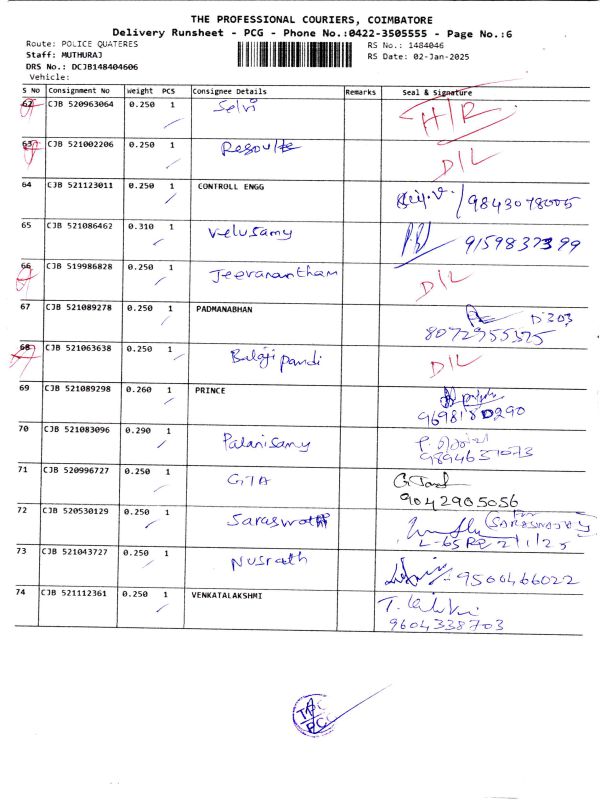 THE PROFESSIONAL COURIERS, COIMBATORE
Delivery Runsheet - PCG - Phone No.:0422-3505555 - Page No.:6
Route: POLICE QUATERES
RS No.: 1484046
Staff: MUTHURAJ
RS Date: 02-Jan-2025
DRS No.: DCJB148404606
Vehicle:
S No Consignment No Weight PCS Consignee Details Remarks Seal & Signature
62 CJB 520963064 0.250 1 Selvi H/R
63 CJB 521002206 0.250 1 D/L
64 CJB 521123011 0.250 1 CONTROLL ENGG 9843078005
65 CJB 521086462 0.310 1 Velusamy 9159837399
66 CJB 519986828 0.250 1 Jeevanantham D/L
67 CJB 521089278 0.250 1 PADMANABHAN D303
8072955325
68 CJB 521063638 0.250 1 Balaji pandi D/L
69 CJB 521089298 0.260 1 PRINCE
9698180290
70 CJB 521083096 0.290 1 Palanisamy
9894637073
71 CJB 520996727 0.250 1 GTA
9042905056
72 CJB 520530129 0.250 1 Saraswathi (SARASWATHY)
2/1/25
73 CJB 521043727 0.250 1 Nusrath 9500466022
74 CJB 521112361 0.250 1 VENKATALAKSHMI
9604338703